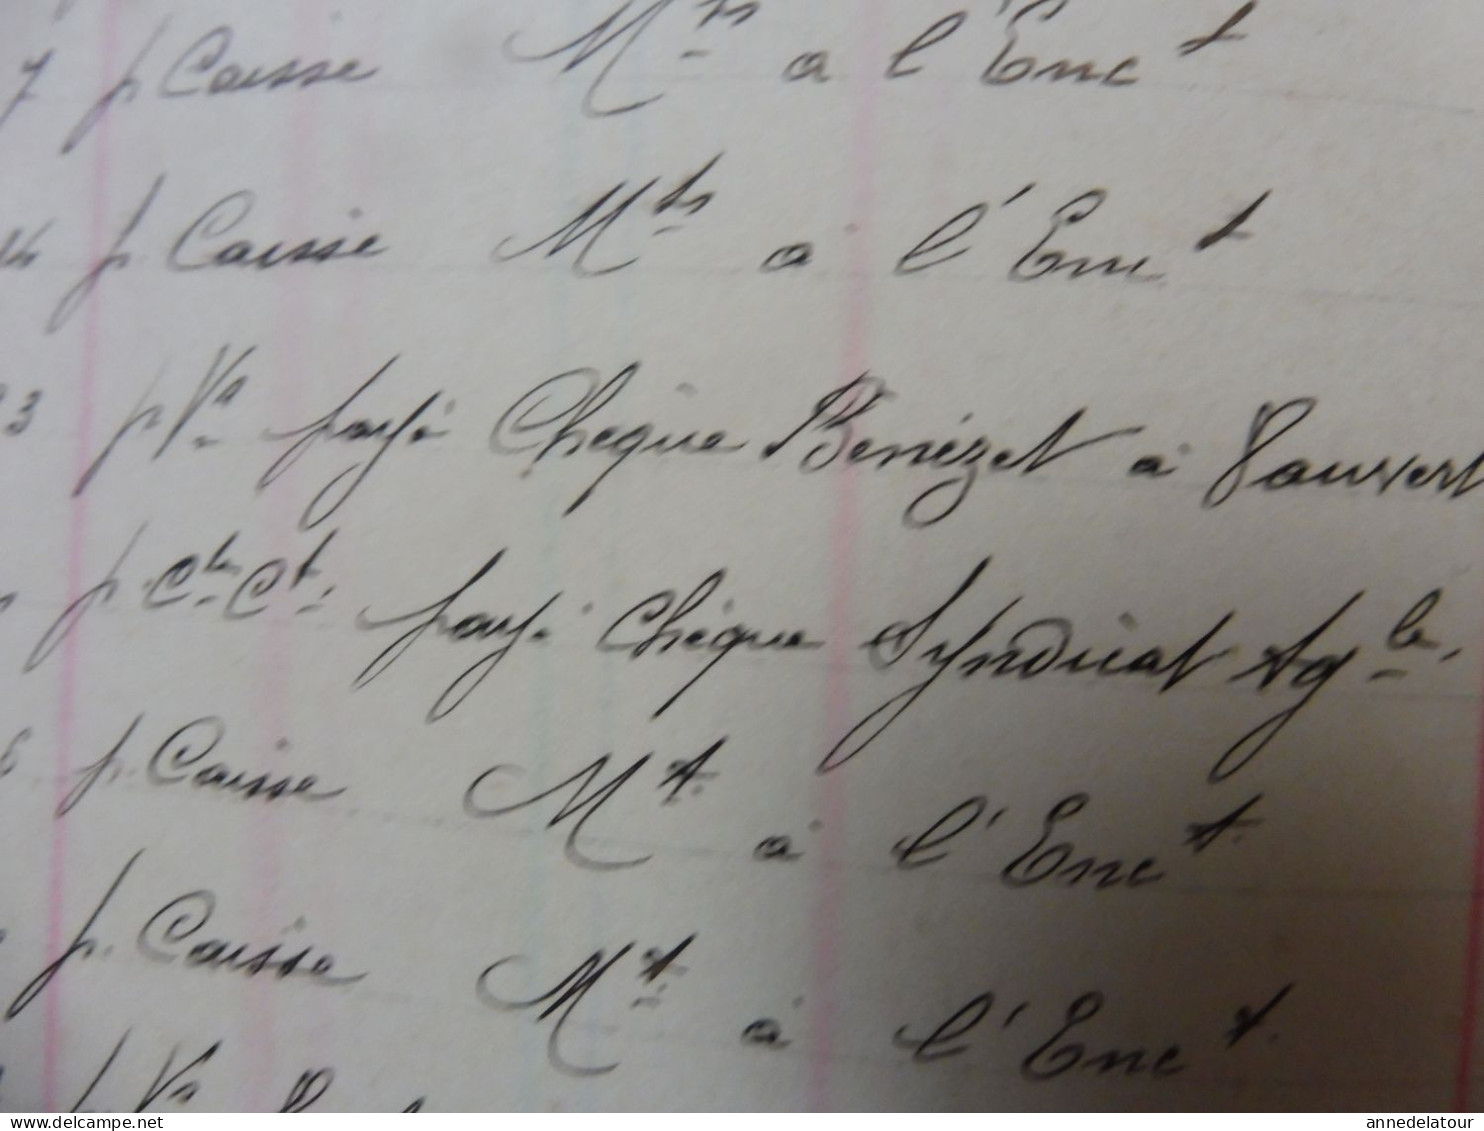 7 p. Caisse Mts à l'Enct
14 p. Caisse Mts à l'Enct
3 p. Vn payé Chèque Benézet à Vauvert
p. Cte Ct. payé Chèque Syndicat Agle.
6 p. Caisse Mt. à l'Enct.
p. Caisse Mt à l'Enct.
p. Vn
delcampe.net
annedelatour